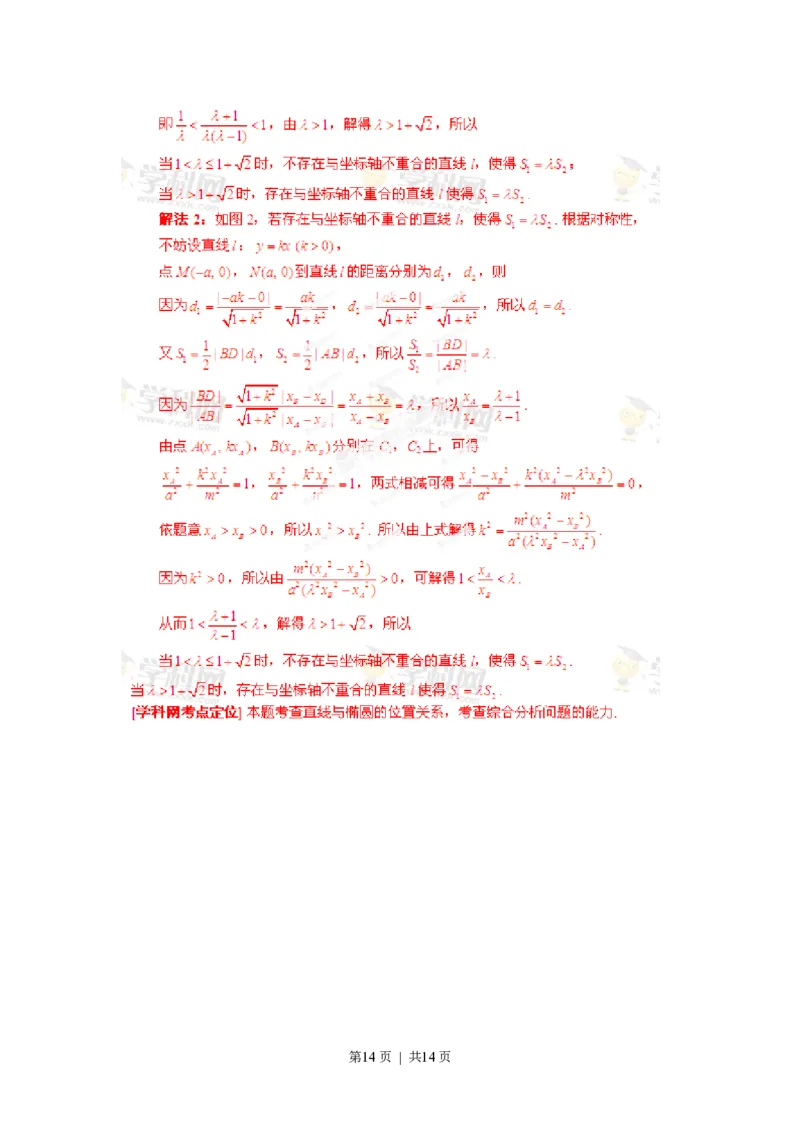 即 1/λ < (λ+1)/(λ(λ−1)) < 1，由 λ>1，解得 λ>1+√2，所以
当1<λ≤1+√2时，不存在与坐标轴不重合的直线 l，使得 S₁=λS₂；
当 λ>1+√2时，存在与坐标轴不重合的直线 l 使得 S₁=λS₂.
解法 2：如图 2，若存在与坐标轴不重合的直线 l，使得 S₁=λS₂. 根据对称性，
不妨设直线 l：y=kx (k>0)，
点 M(−a, 0)，N(a, 0)到直线 l 的距离分别为 d₁，d₂，则
因为 d₁ = |−ak−0|/√(1+k²) = ak/√(1+k²)，d₂ = |ak−0|/√(1+k²) = ak/√(1+k²)，所以 d₁=d₂.
又 S₁ = 1/2 |BD|d₁，S₂ = 1/2 |AB|d₂，所以 S₁/S₂ = |BD|/|AB| = λ.
因为 |BD|/|AB| = √(1+k²)|x_B−x_D| / √(1+k²)|x_A−x_B| = (x_A+x_B)/(x_A−x_B) = λ，所以 x_A/x_B = (λ+1)/(λ−1).
由点 A(x_A, kx_A)，B(x_B, kx_B)分别在 C₁，C₂上，可得
x_A²/a² + k²x_A²/m² = 1，x_B²/a² + k²x_B²/n² = 1，两式相减可得 (x_A²−x_B²)/a² + k²(x_A²−λ²x_B²)/m² = 0，
依题意 x_A>x_B>0，所以 x_A²>x_B². 所以由上式解得 k² = m²(x_A²−x_B²)/(a²(λ²x_B²−x_A²)).
因为 k²>0，所以由 m²(x_A²−x_B²)/(a²(λ²x_B²−x_A²)) > 0，可解得1 < x_A/x_B < λ.
从而1 < (λ+1)/(λ−1) < λ，解得 λ>1+√2，所以
当1<λ≤1+√2时，不存在与坐标轴不重合的直线 l，使得 S₁=λS₂.
当 λ>1+√2时，存在与坐标轴不重合的直线 l 使得 S₁=λS₂.
[学科网考点定位] 本题考查直线与椭圆的位置关系，考查综合分析问题的能力.
第14页 | 共14页